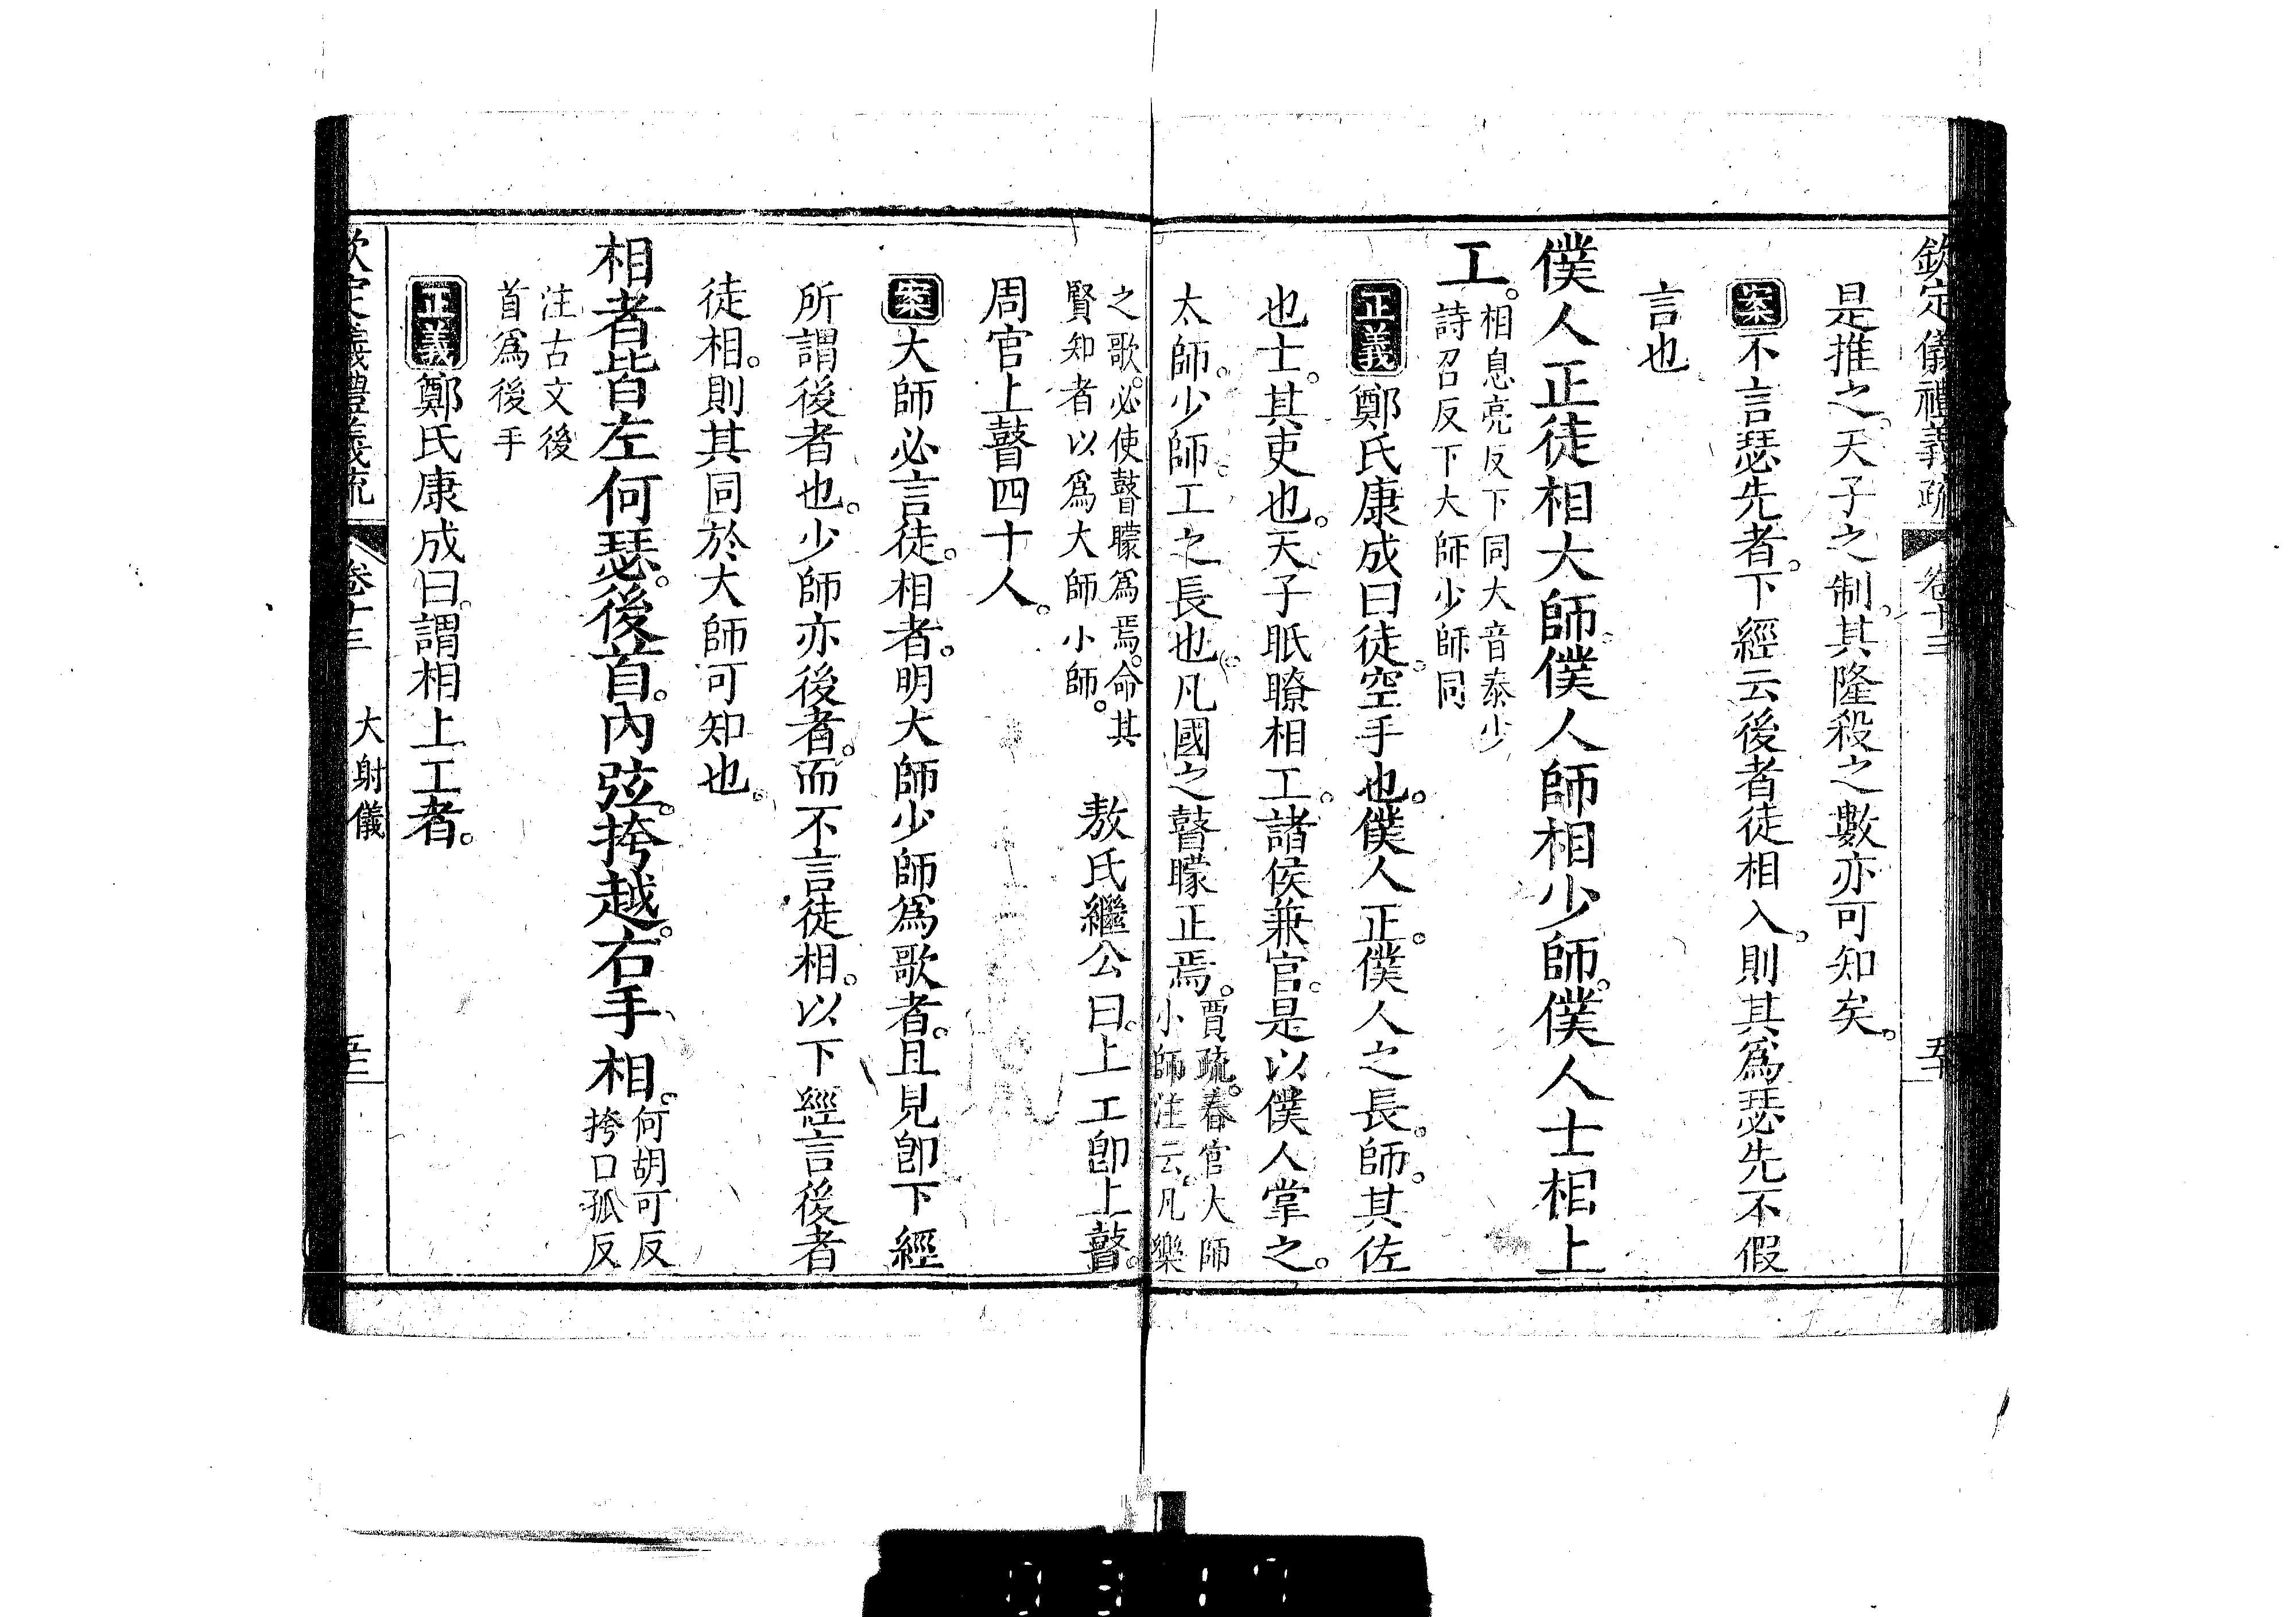 欽定儀禮義疏 卷十三 五十
是推之。天子之制。其隆殺之數亦可知矣。
案不言瑟先者。下經云後者徒相入。則其爲瑟先不假
言也
僕人正徒相大師。僕人師相少師。僕人士相上
工。相息亮反下同大音泰少
詩召反下大師少師同
正義鄭氏康成曰徒。空手也。僕人正。僕人之長。師。其佐
也士。其吏也。天子眂瞭相工。諸侯兼官。是以僕人掌之。
太師。少師。工之長也。凡國之瞽矇正焉。賈疏。春官大師
小師注云。凡樂
之歌。必使瞽矇爲焉。命其
賢知者以爲大師小師。
敖氏繼公曰。上工卽上瞽。
周官上瞽四十人。
案大師必言徒。相者。明大師少師爲歌者。且見卽下經
所謂後者也。少師亦後者。而不言徒相。以下經言後者
徒相。則其同於大師可知也。
相者皆左何瑟。後首。內弦。挎越。右手相。何胡可反
挎口孤反
注古文後
首爲後手
正義鄭氏康成曰。謂相上工者。
欽定儀禮義疏 卷十三 大射儀